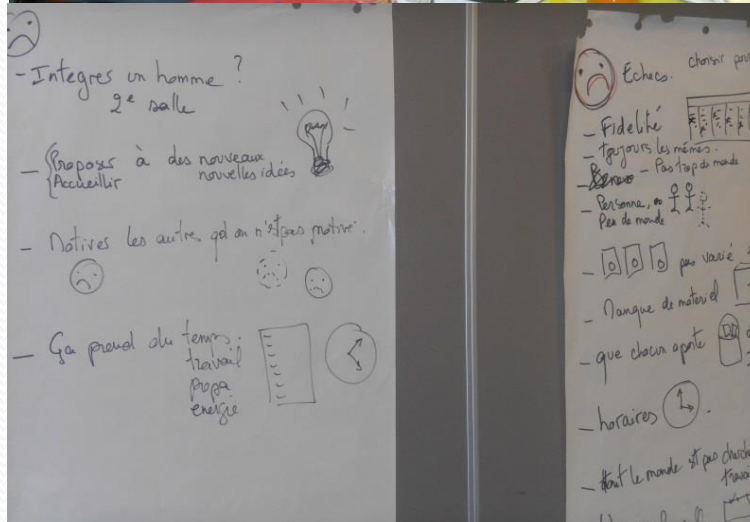 - Integres un homme ?
2e salle
- Proposer à des nouveaux
Accueillir nouvelles idées
- Motives les autres qd on n'est pas motivé.
- Ça prend du temps.
travail
prépa
energie
Echecs. choisir
- Fidelité
- toujours les mêmes.
- Pas trop de monde
- Personne, ou
Peu de monde
- pas varié
- Manque de materiel
- que chacun apporte
- horaires
- tout le monde est pas